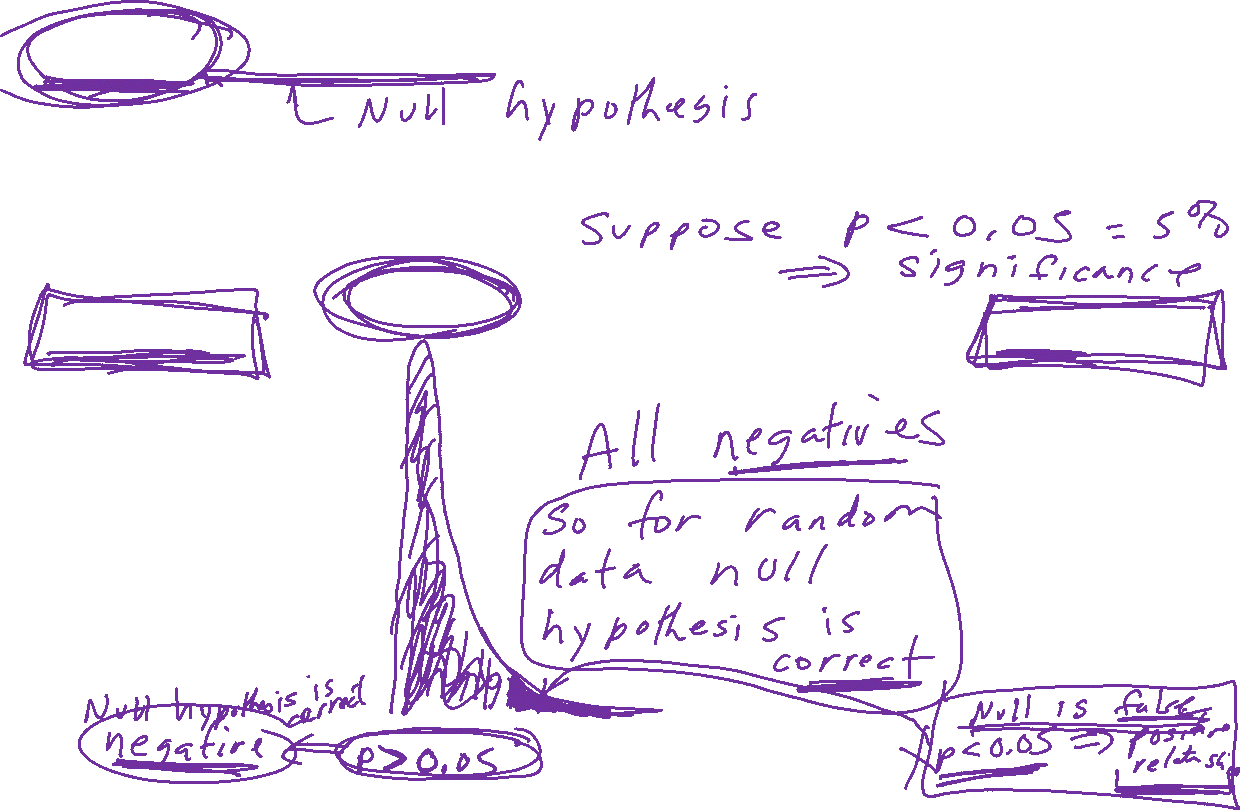 Null hypothesis
Suppose p < 0.05 = 5%
⇒ significance
All negativies
So for random
data null
hypothesis is
correct
Null hypothesis is
correct
negative
p > 0.05
Null is false
p < 0.05 ⇒ positive
relatship